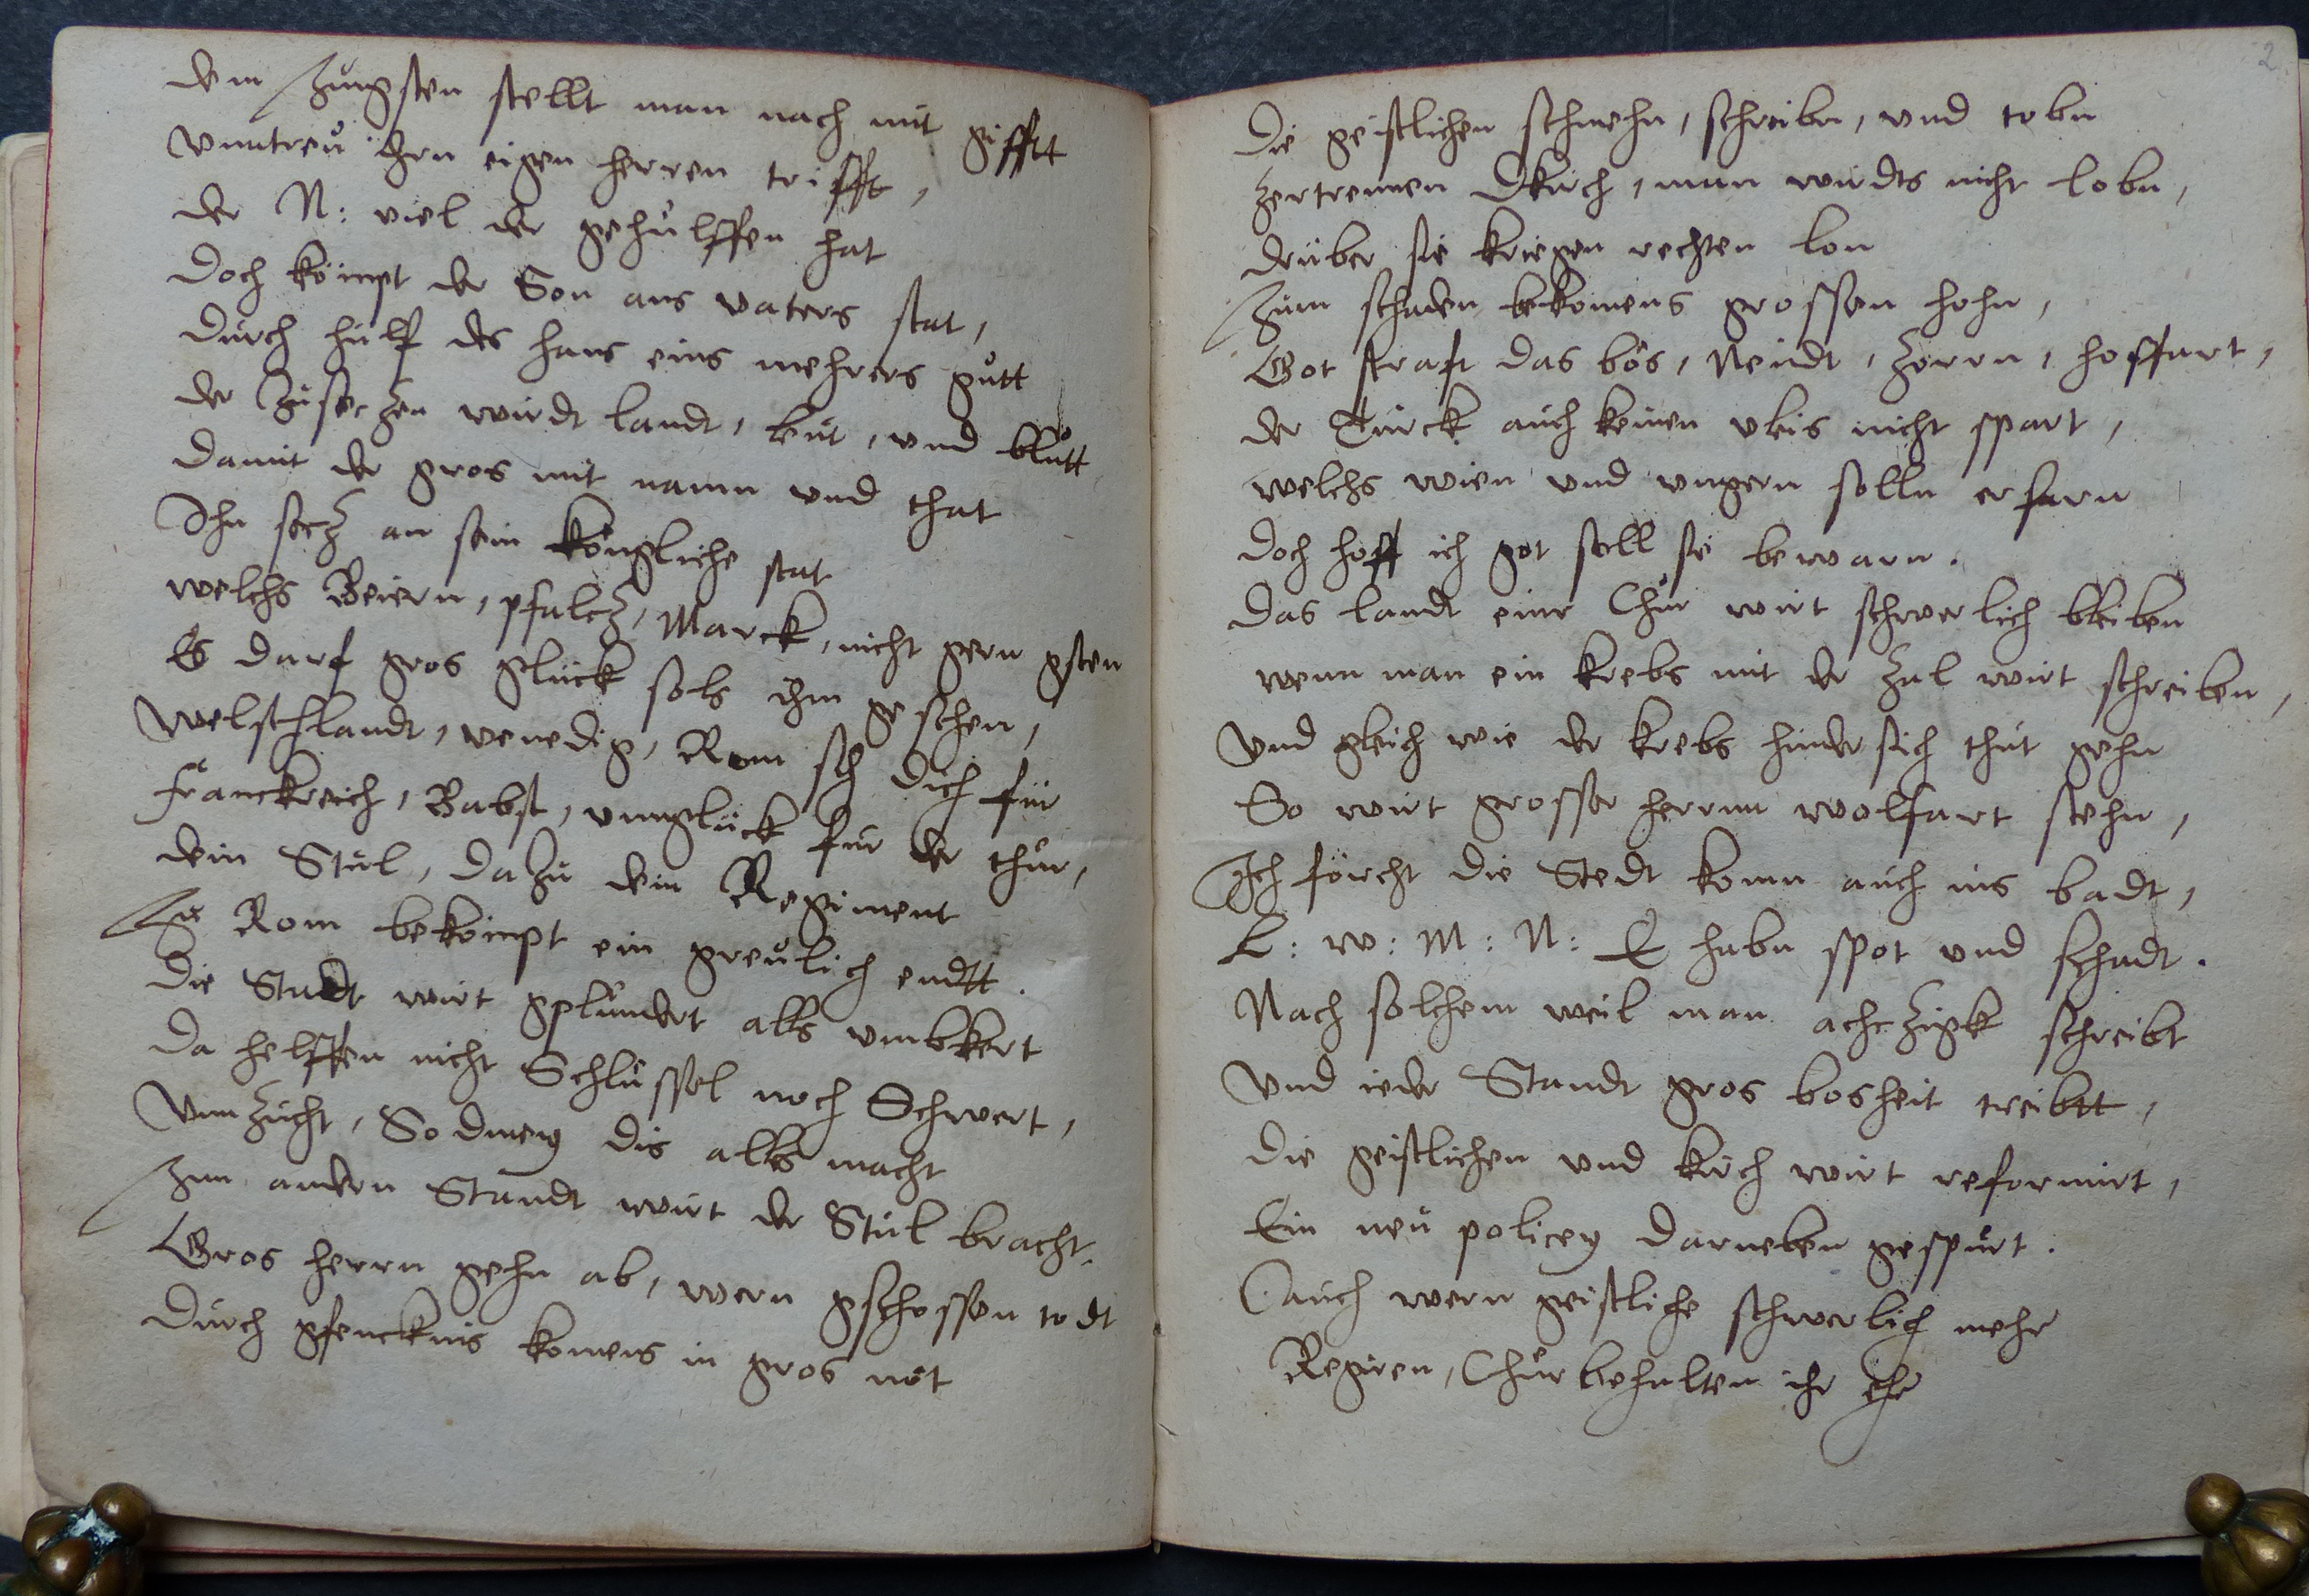 dem Jungsten stellt man nach mit gifftt
vnntreu ihrn eigen herren trifft,
der N: viel der gehülffen hat
Doch kömpt der Son ans vaters stat,
Durch hülf des hans eins mehrers gutt
der zuseczen wirdt landt, leut, und blutt
Damit der gros mit namn und that
Ihn secz an sein köngliche stat
welchs Beiern, pfalcz, Marck, nicht gern gsten
Es darf gros glück sols ihm geschen,
welschlandt, venedig, Rom seh dich für
franckreich, Babst, vnnglück für der thür,
dein Stul, dazu dein Regiment
Zu Rom bekömpt ein greulich endtt.
Die Stadt wirt gplündert alls vmbkert
Da helffen nicht Schlüssel noch Schwert,
Vnnzucht, Sodmey dis alls macht
Zum andern Standt wirt der Stul bracht.
Gros herrn gehn ab, wern gschossen todt
Durch gfencknis komens in gros not
2
Die geistlichen schmehn, schreibn, und tobn
zertrennen dkirch, man wirdts nicht lobn,
drüber sie kriegen rechten lon
Zum schaden bekomens grossen hohn,
Got straft das bös, Neidt, zorn, hoffart,
der Türck auch keinen vleis nicht spart,
welchs wien und vngern solln erfarn
Doch hoff ich got soll sie bewarn.
Das landt einr Chur wirt schwerlich bleiben
wenn man ein krebs mit der Zal wirt schreiben,
Und gleich wie der krebs hinder sich thut gehn
So wirt grosser herrnn wolfart stehn,
Ich förcht die Stedt komn auch ins badt,
L: W: M: N: E habn spot und schadt.
Nach solchem weil man achczigk schreibt
Und ieder Standt gros bosheit treibtt,
Die geistlichen und kirch wirt reformirt,
Ein neu policey darneben gespürt.
Auch wern geistliche schwerlich mehr
Regiren, Chur behalten ihr ehr